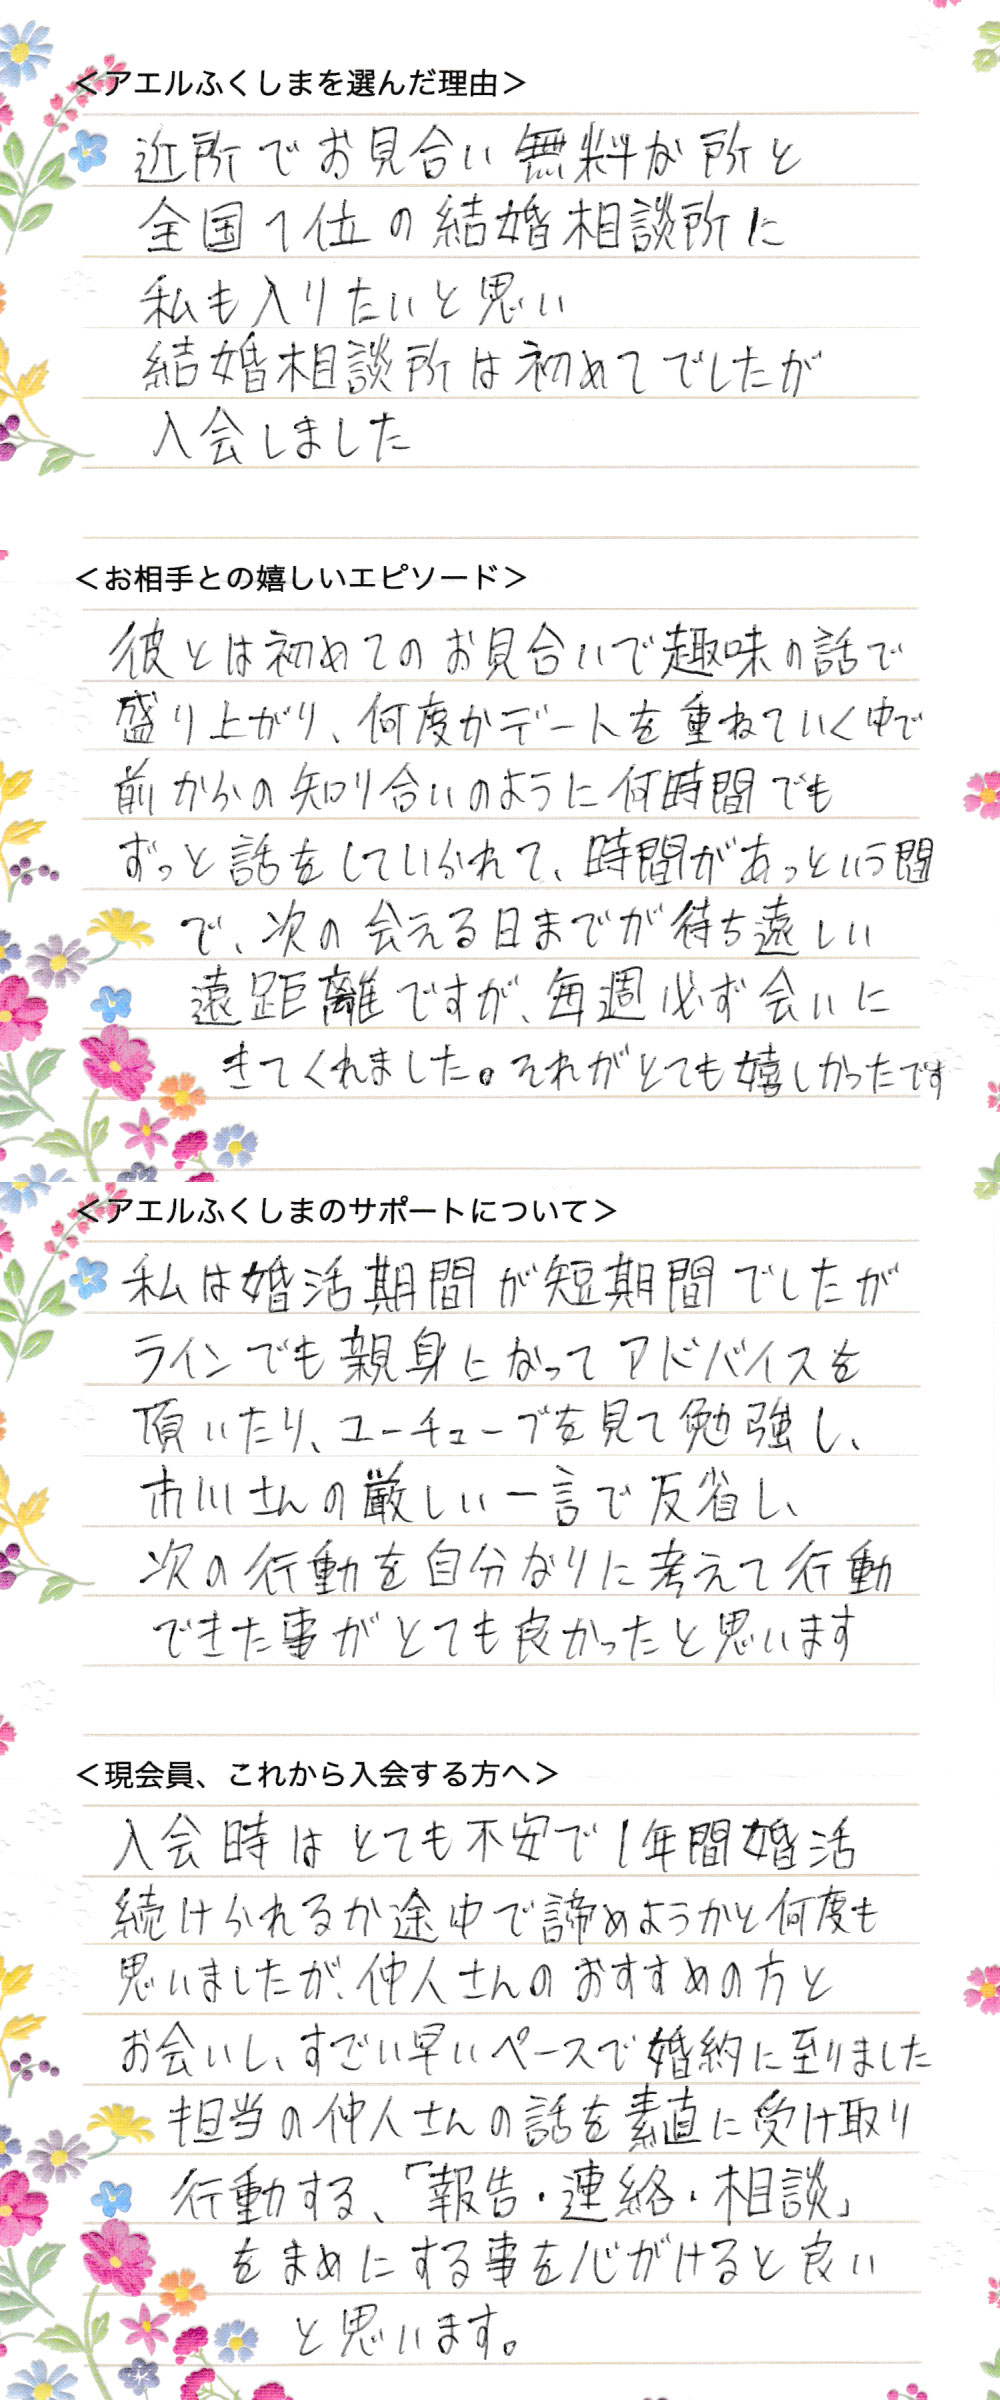 ＜アエルふくしまを選んだ理由＞
近所でお見合い無料な所と
全国1位の結婚相談所に
私も入りたいと思い
結婚相談所は初めてでしたが
入会しました
＜お相手との嬉しいエピソード＞
彼とは初めてのお見合いで趣味の話で
盛り上がり、何度かデートを重ねていく中で
前からの知り合いのように何時間でも
ずっと話をしていられて、時間があっという間
で、次の会える日までが待ち遠しい
遠距離ですが、毎週必ず会いに
きてくれました。それがとても嬉しかったです
＜アエルふくしまのサポートについて＞
私は婚活期間が短期間でしたが
ラインでも親身になってアドバイスを
頂いたり、ユーチューブを見て勉強し、
市川さんの厳しい一言で反省し、
次の行動を自分なりに考えて行動
できた事がとても良かったと思います
＜現会員、これから入会する方へ＞
入会時はとても不安で1年間婚活
続けられるか途中で諦めようかと何度も
思いましたが、仲人さんのおすすめの方と
お会いし、すごい早いペースで婚約に至りました
担当の仲人さんの話を素直に受け取り
行動する、「報告・連絡・相談」
をまめにする事を心がけると良い
と思います。